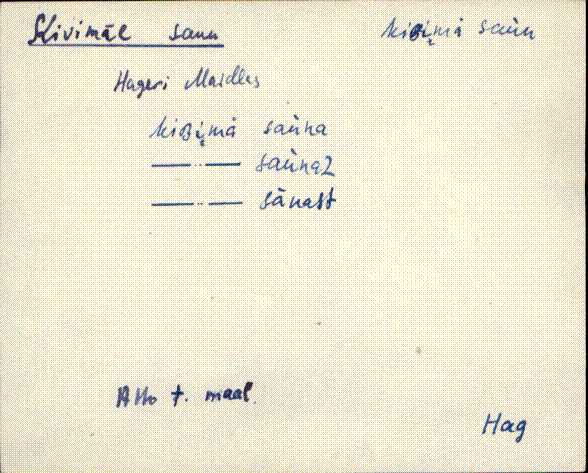 Kivimäe saun kiʙi̮mä saùn
Hageri Maidlas
kiʙi̮mä saùna
—··— saùnaZ
—··— sànast
Atto t. maal.
Hag